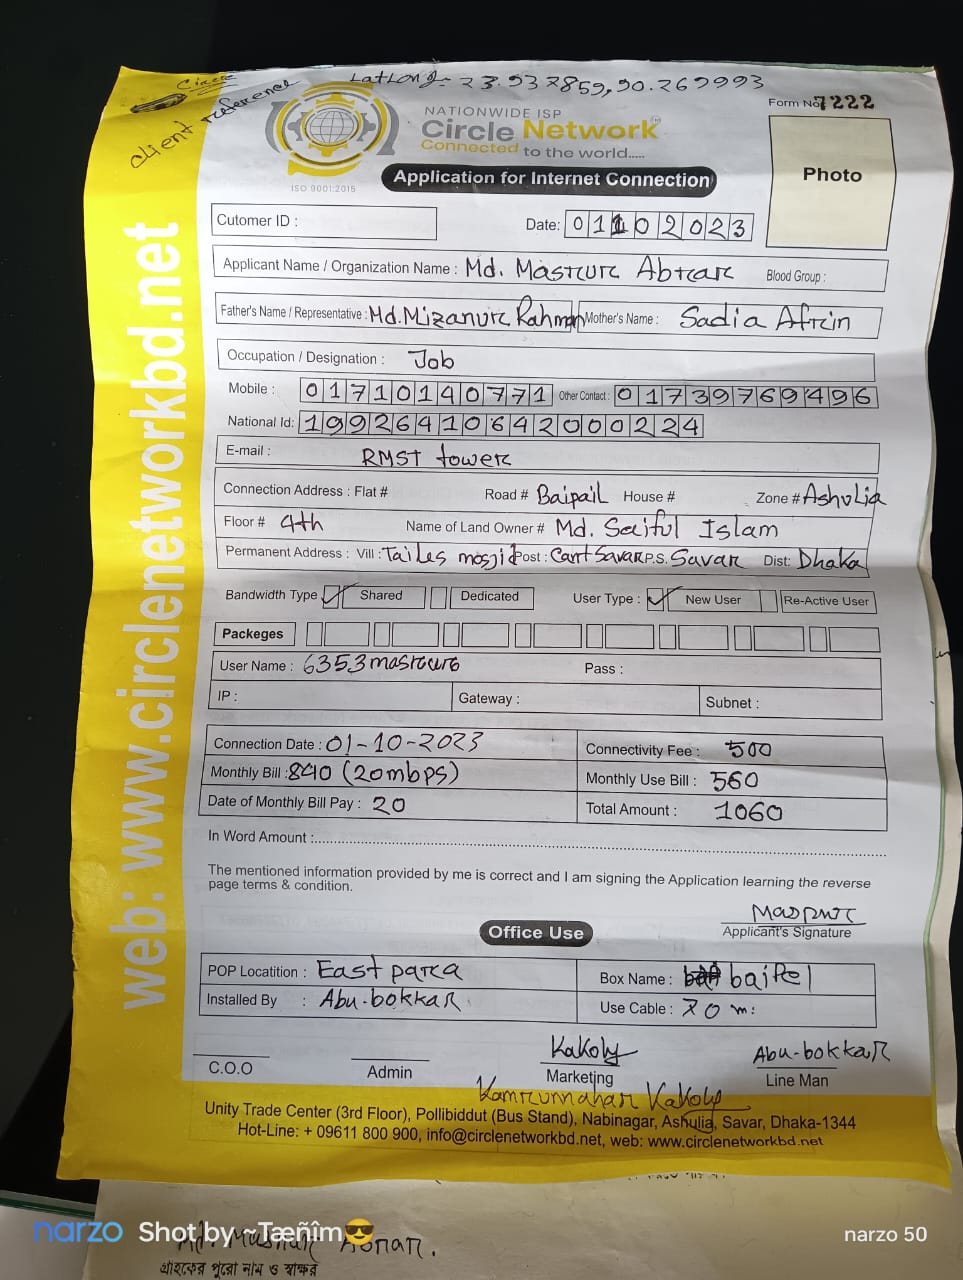 Circle
client reference
LatLong:- 23.937859,90.269993
Form No 7222
NATIONWIDE ISP
Circle Network
Connected to the world.....
ISO 9001:2015
Application for Internet Connection
Photo
Cutomer ID :
Date: 01102023
Applicant Name / Organization Name : Md. Masrur Abrar Blood Group :
Father's Name / Representative : Md. Mizanur Rahman Mother's Name : Sadia Afrin
Occupation / Designation : Job
Mobile : 01710140771 Other Contact : 01739769496
National Id: 19926410642000224
E-mail : RMST tower
Connection Address : Flat # Road # Baipail House # Zone # Ashulia
Floor # 4th Name of Land Owner # Md. Saiful Islam
Permanent Address : Vill : Tailes mosjid Post : Cant Savar P.S. Savar Dist: Dhaka
Bandwidth Type Shared Dedicated User Type : New User Re-Active User
Packeges
User Name : 6353masrur Pass :
IP : Gateway : Subnet :
Connection Date : 01-10-2023 Connectivity Fee : 500
Monthly Bill : 840 (20mbps) Monthly Use Bill : 560
Date of Monthly Bill Pay : 20 Total Amount : 1060
In Word Amount :
The mentioned information provided by me is correct and I am signing the Application learning the reverse
page terms & condition.
Masrur
Applicant's Signature
Office Use
POP Locatition : East para Box Name : baipel
Installed By : Abu-bokkar Use Cable : 70 m:
Kakoly Abu-bokkar
C.O.O Admin Marketing Line Man
Kamrunnahar Kakoly
Unity Trade Center (3rd Floor), Pollibiddut (Bus Stand), Nabinagar, Ashulia, Savar, Dhaka-1344
Hot-Line: + 09611 800 900, info@circlenetworkbd.net, web: www.circlenetworkbd.net
web: www.circlenetworkbd.net
narzo Shot by ~Tæñîm😎 narzo 50
গ্রাহকের পুরো নাম ও স্বাক্ষর